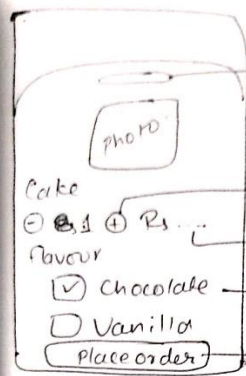 photo
Cake
⊖ 1 ⊕ Rs....
flavour
☑ chocolate
☐ Vanilla
Place order